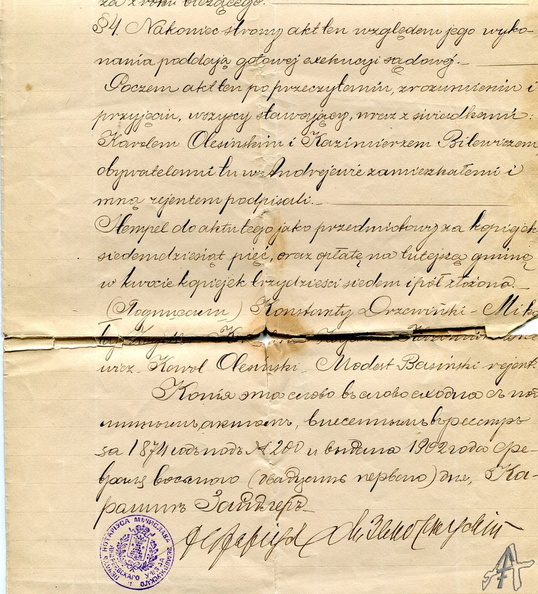 za roku bieżącego.
§4. Nakoniec strony akt ten względem jego wyko-
nania poddają gotowej exekucyi sądowej.
Poczem akt ten po przeczytaniu, zrozumieniu i
przyjęciu, wszyscy stawający, wraz z świadkami:
Karolem Olesińskim i Kazimierzem Bilewiczem
obywatelami tu w Andrejewie zamieszkałemi i
mną rejentem podpisali.
Stempel do aktu tego jako przedmiotowy za kopiejek
siedemdziesiąt pięć, oraz opłatę na tutejszą gminę
w kwocie kopiejek trzydzieści siedem i pół złożono.
(Подписали) Konstanty Orzowiński - Mik
wicz. Karol Olesiński, Modest Basiński rejent.
Копія эта слово въ слово сходна съ под-
линнымъ актомъ, внесеннымъ въ реестръ
за 1874 годъ подъ № 200 и выдана 1902 года Фе-
враля (двадцать перваго) дня, Ка-